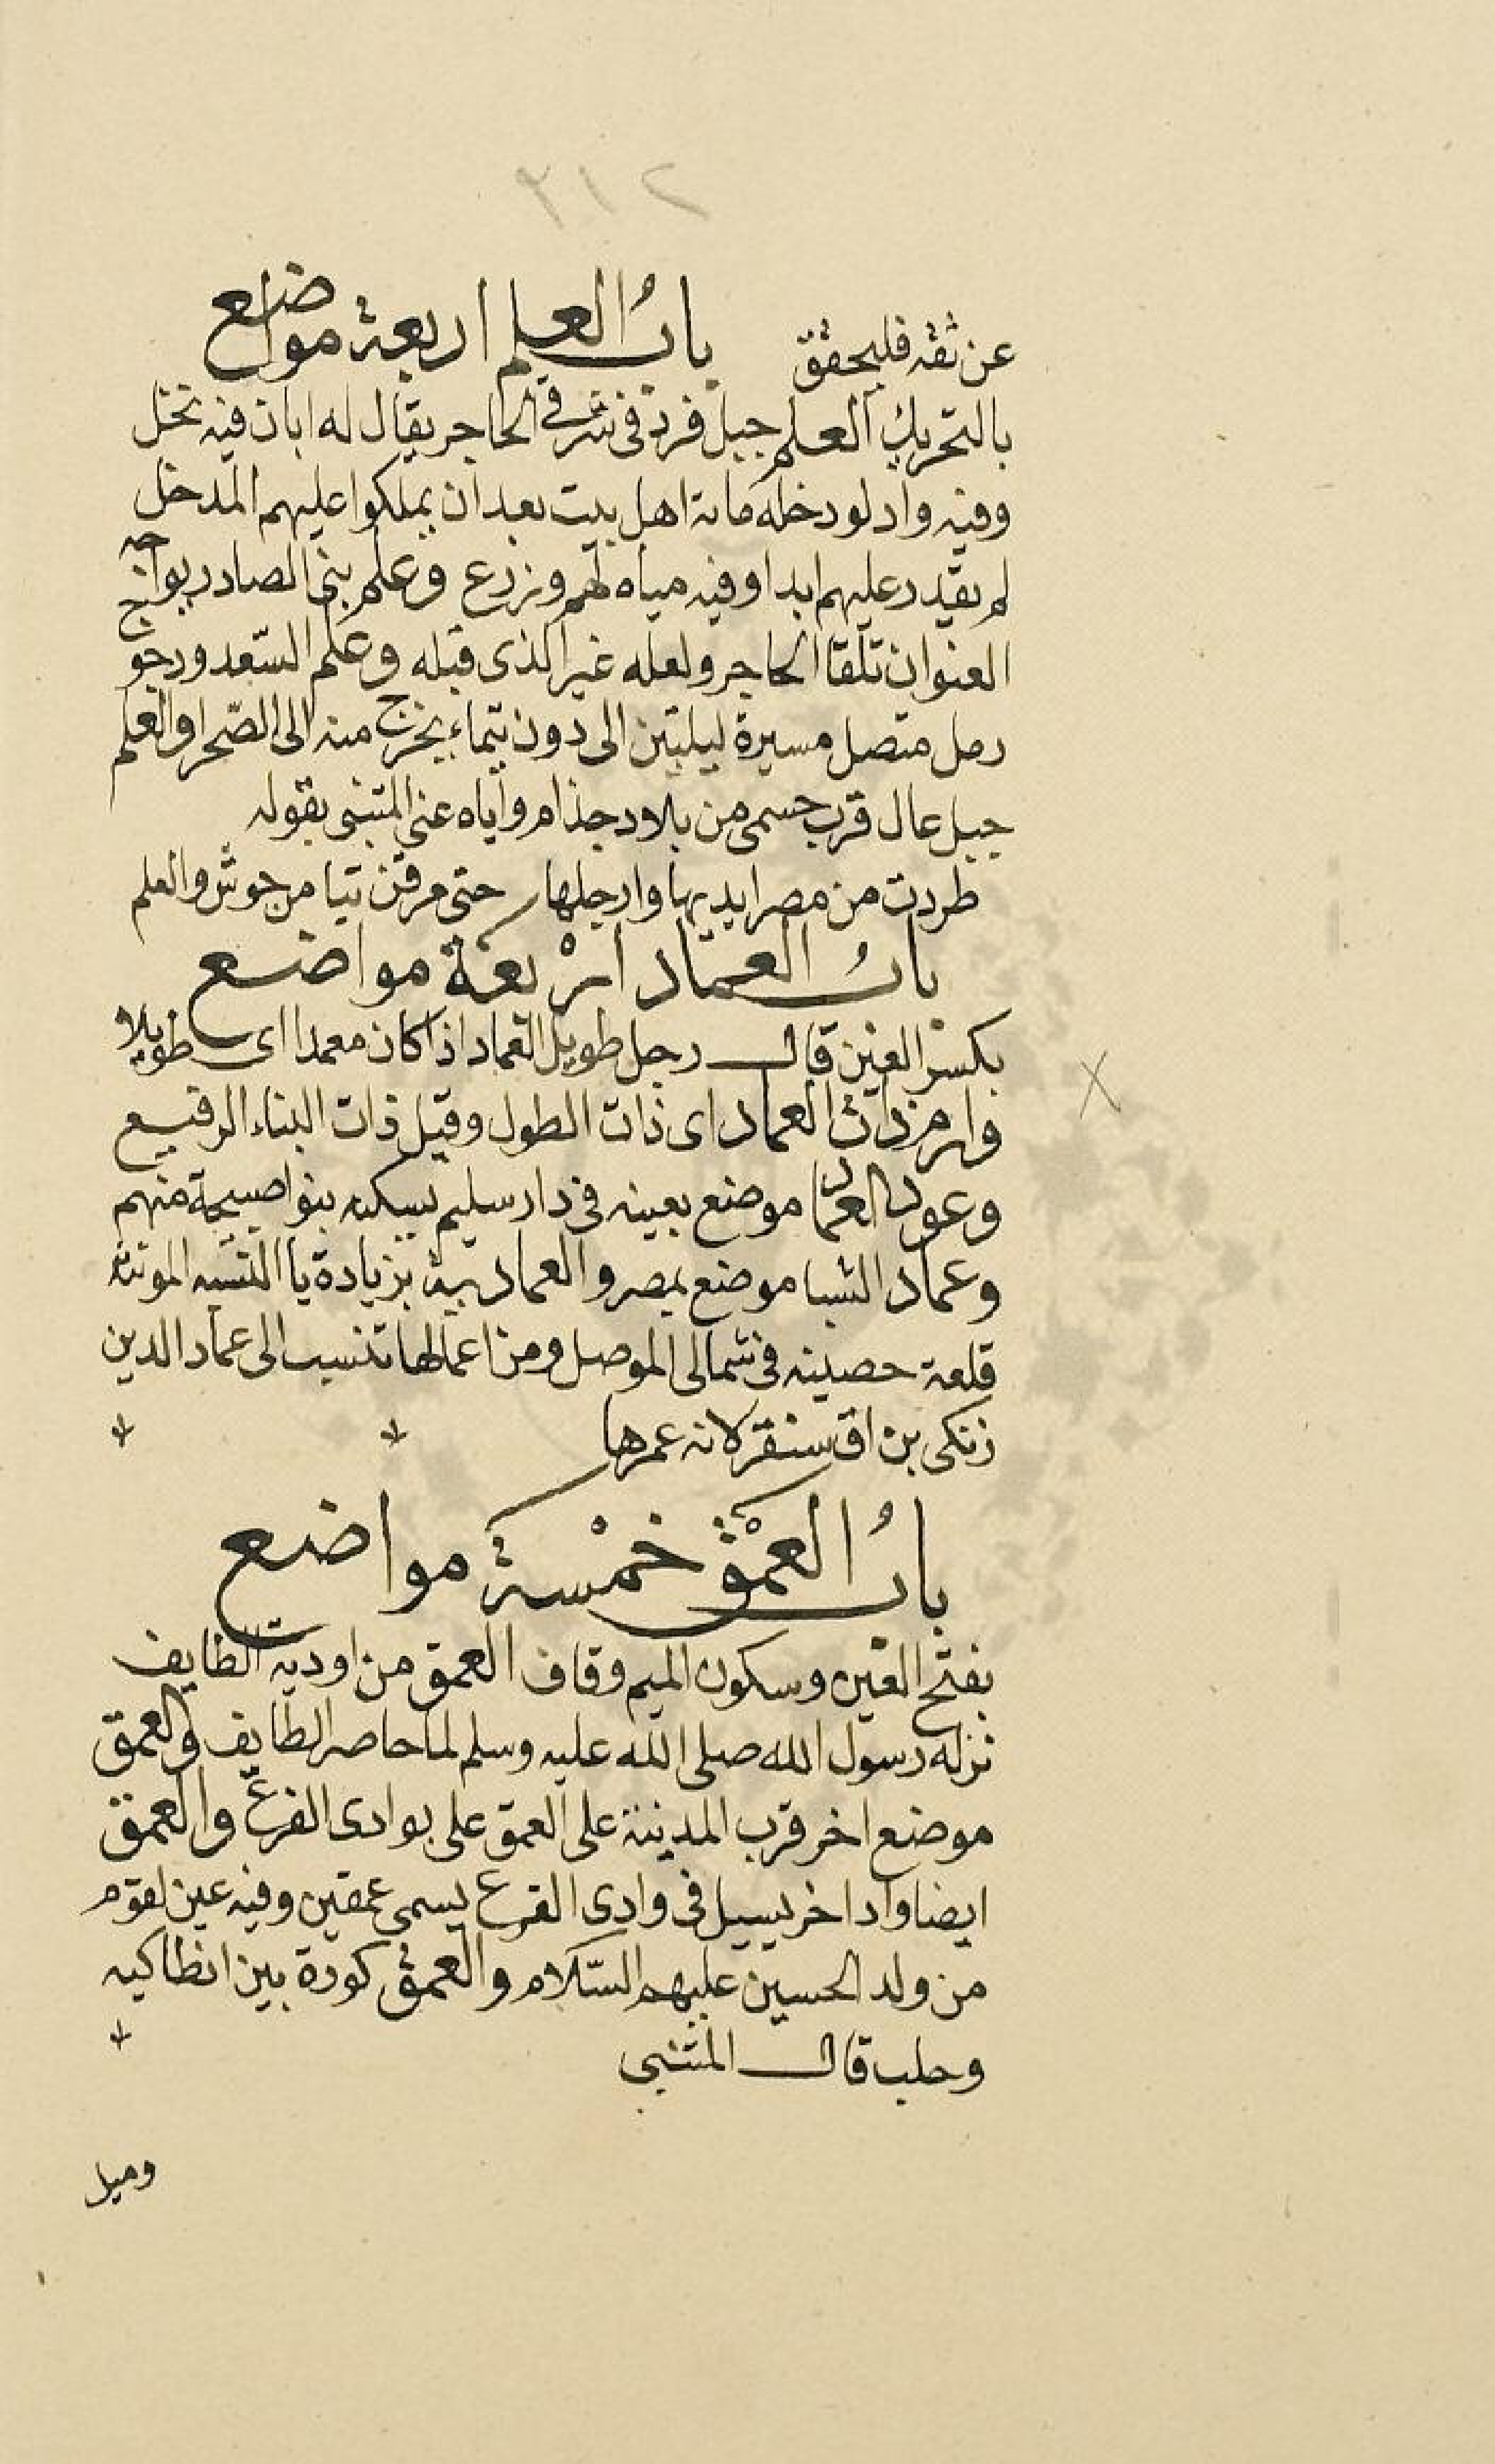 ٣١٢
عن ثقه فليحقق باب العلم اربعة مواضع
بالتحريك العلم جبل فرد في شرقي الحاجر يقال له ابان فيه نخل
وفيه واد لو دخله مائة اهل بيت بعد ان يملكوا عليهم المدخل
لم يقدر عليهم ابدا وفيه مياه لهم وزرع وعلم بني الصادر يواجه
العنوان تلقا الحاجر ولعله غير الذي قبله وعلم السعد ودجوج
رمل متصل مسيرة ليلتين الى دون تيماء يخرج منه الى الصحرا والعلم
جبل عال قرب حسمى من بلاد جذام واياه عنى المتنبى بقوله
طردت من مصر ايديها وارجلها حتى مرقن تيا من جوش والعلم
باب العماد اربعة مواضع
بكسر العين قال رجل طويل العماد اذا كان معمدا اى طويلا
وارم ذات العماد اى ذات الطول وقيل ذات البناء الرفيع
وعود العماد موضع بعينه فى دار سليم يسكنه بنو اصيحة منهم
وعماد الشبا موضع بمصر والعمادية بزيادة يا النسبه المونثه
قلعة حصينه فى شمالى الموصل ومن اعمالها تنسب الى عماد الدين
زنكى بن اق سنقر لانه عمرها
باب العمق خمسة مواضع
بفتح العين وسكون الميم وقاف العمق من اودية الطايف
نزله رسول الله صلى الله عليه وسلم لما حاصر الطايف والعمق
موضع اخر قرب المدينة على العمق على بوادى الفرع والعمق
ايضا واد اخر يسيل فى وادى الفرع يسمى عمقين وفيه عين لقوم
من ولد الحسين عليهم السلام والعمق كورة بين انطاكيه
وحلب قال المتنبى
وميل